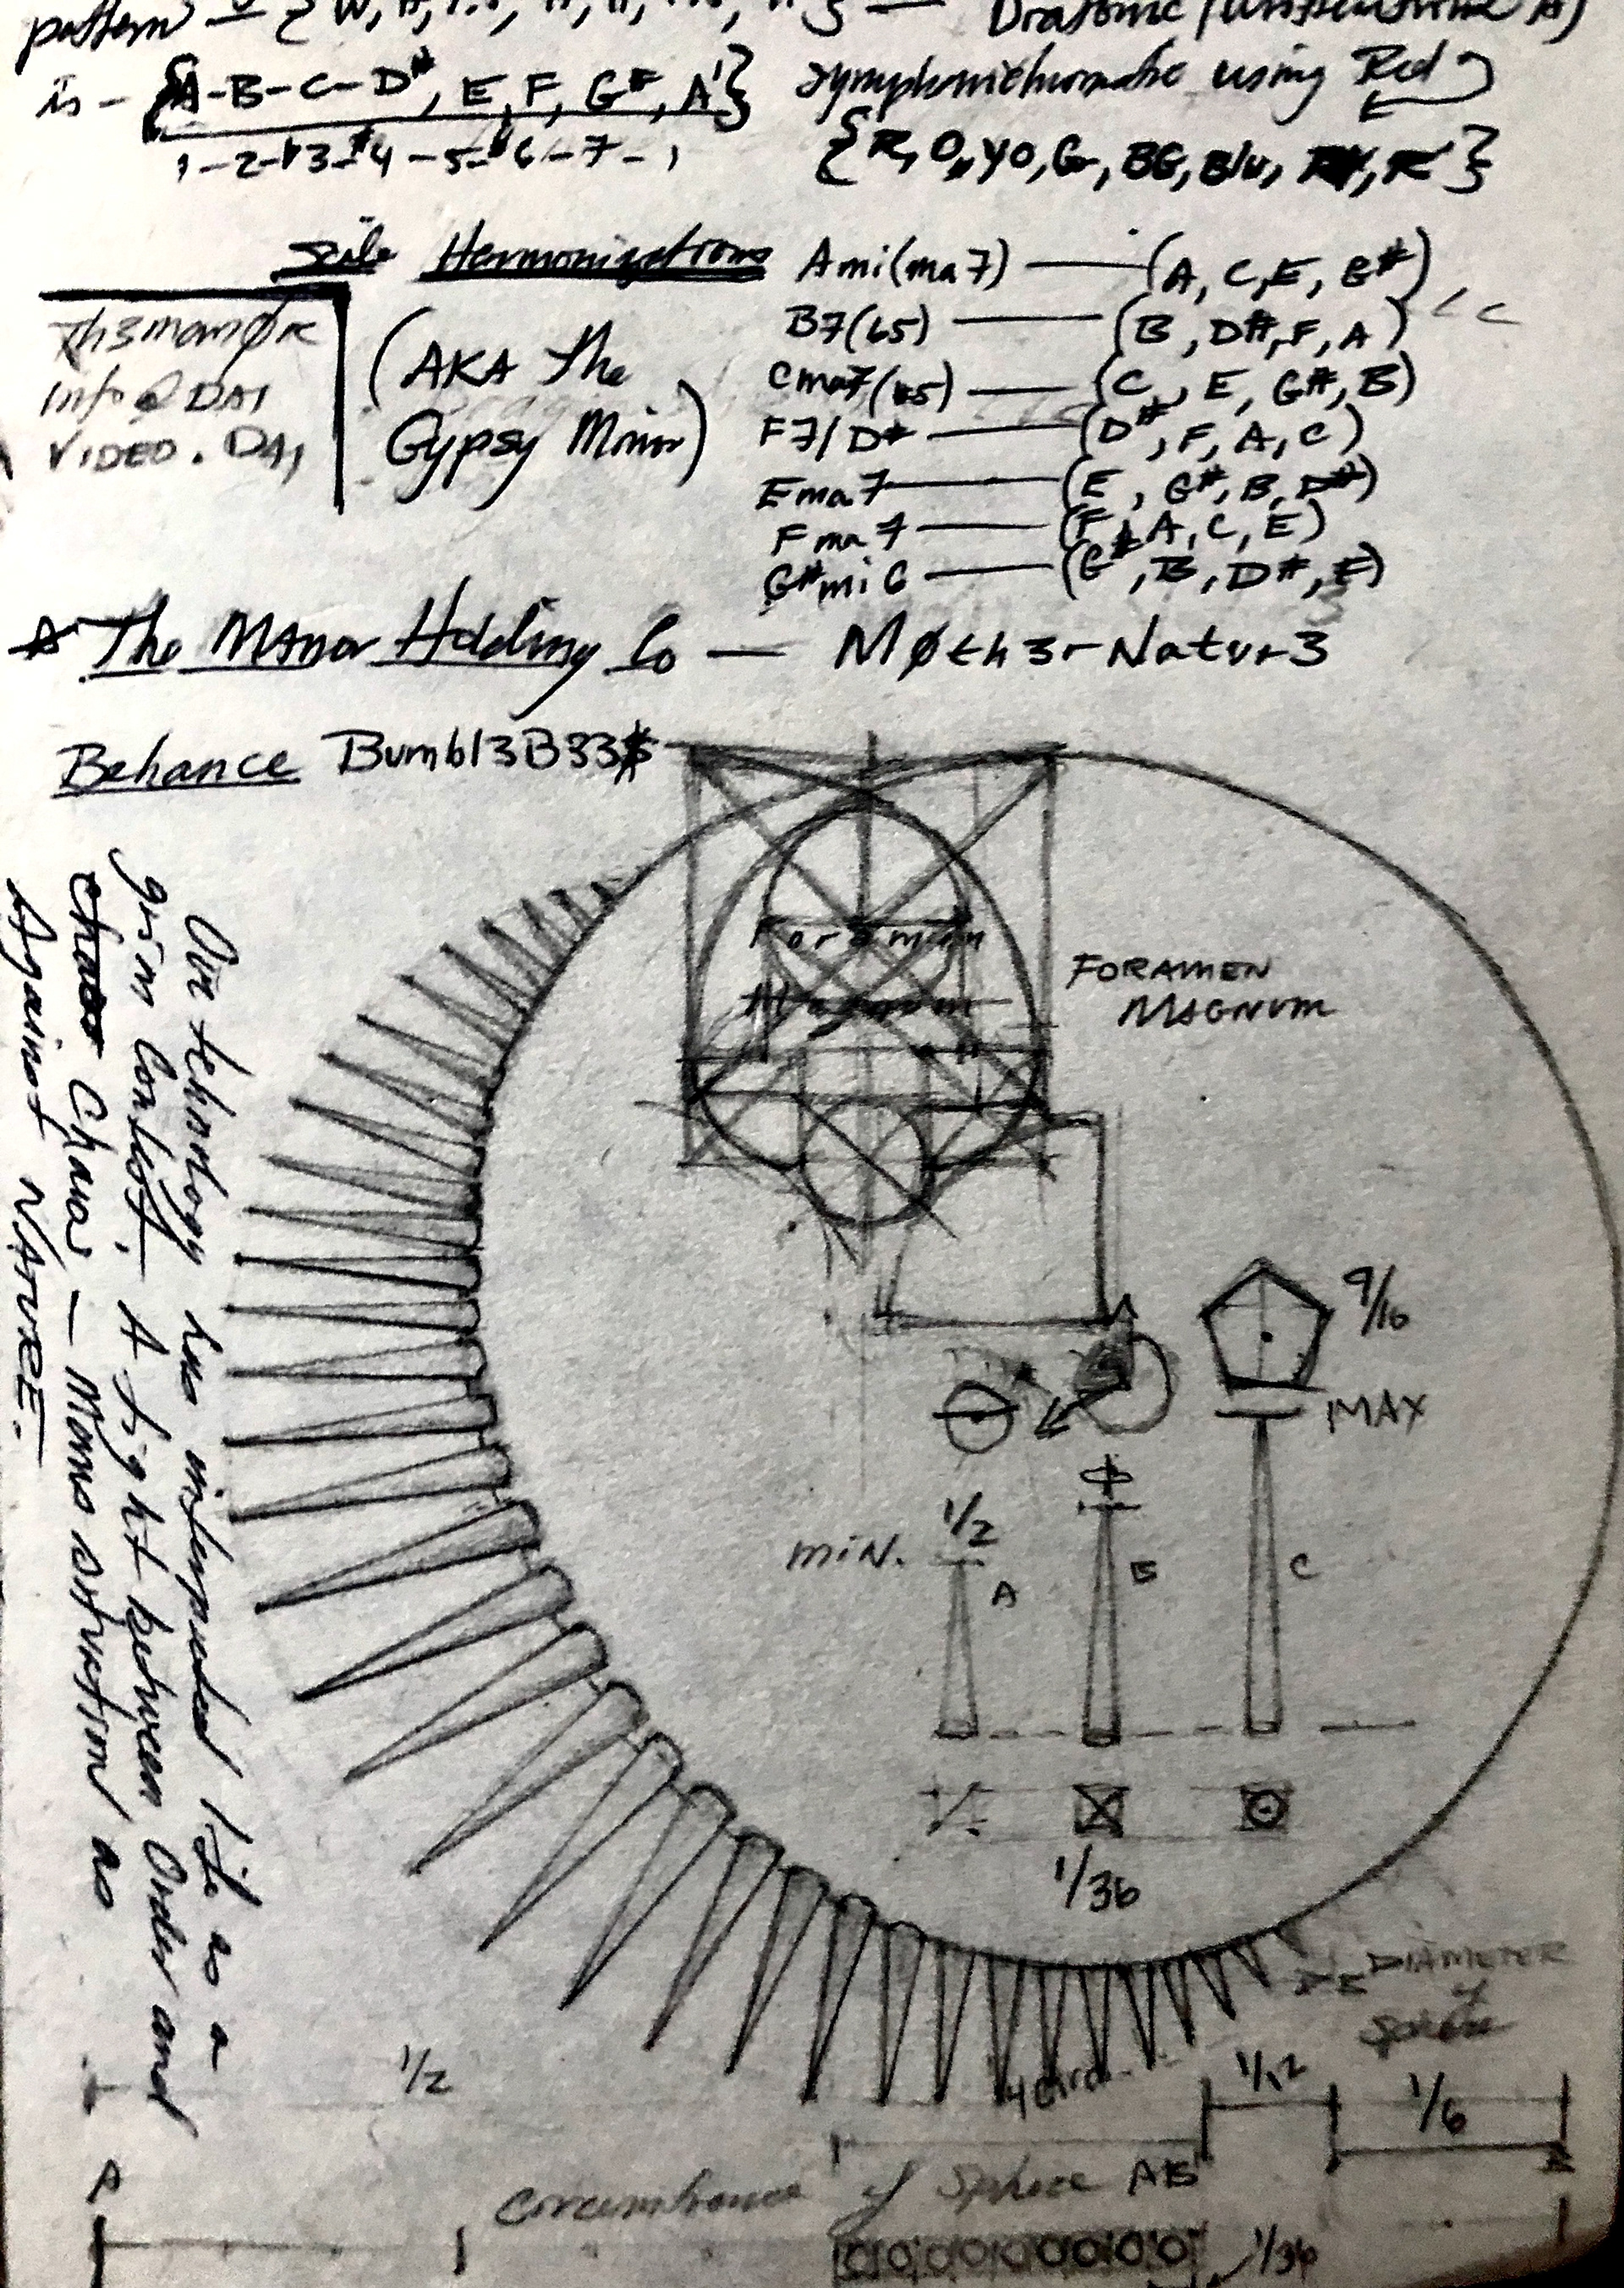 pattern
is - {A-B-C-D#, E, F, G#, A'} symphonichromatic using Red
1-2-3-#4-5-6-7-1 {R, O, YO, G, BG, Blu, RV, R'}
Scale Harmonizations
Ami(ma7) — (A, C, E, G#)
B7(b5) — (B, D#, F, A)
Cma7(#5) — (C, E, G#, B)
F7/D# — (D#, F, A, C)
Ema7 — (E, G#, B, D#)
Fma7 — (F, A, C, E)
G#mi6 — (G#, B, D#, F)
Th3manØr
Info@DAI
VIDEO.DAI
(AKA the
Gypsy Minor)
The MANor Holding Co — MØth3r-Natur3
Behance Bumbl3B33$
Foramen
Magnum
FORAMEN
MAGNUM
9/16
MAX
1/2
MIN.
A
B
C
1/36
Our technology has interpreted life as a
grim contest. A fight between Order and
Chaos — Mans situation as
Against NATURE.
DIAMETER
of
Sphere
1/2
1/12
1/6
Circumference of Sphere AB
A
B
1/36